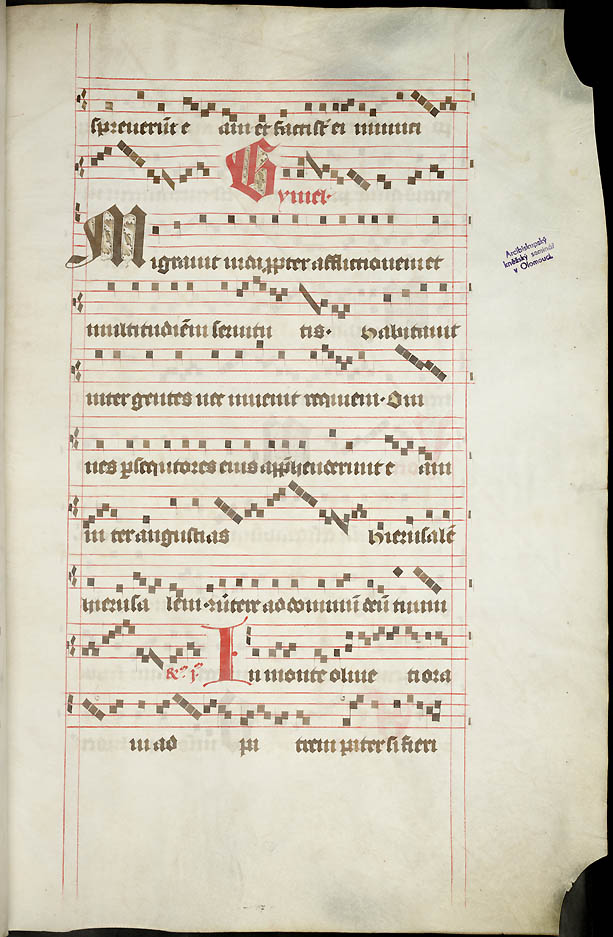 spreuerūt e am et facti sūt ei inimici
Gymel.
Migrauit iudas ꝓpter afflictionem et
multitudinem seruitu tis. Habitauit
inter gentes nec inuenit requiem. Om
nes ꝑsequtores eius apphenderunt e am
in ter angustias Hierusalē
hierusa lem. ꝯuertere ad dominū deū tuum
In monte oliue ti ora
ui ad pa trem pater si fieri
Arcibiskupský
kněžský seminář
v Olomouci.